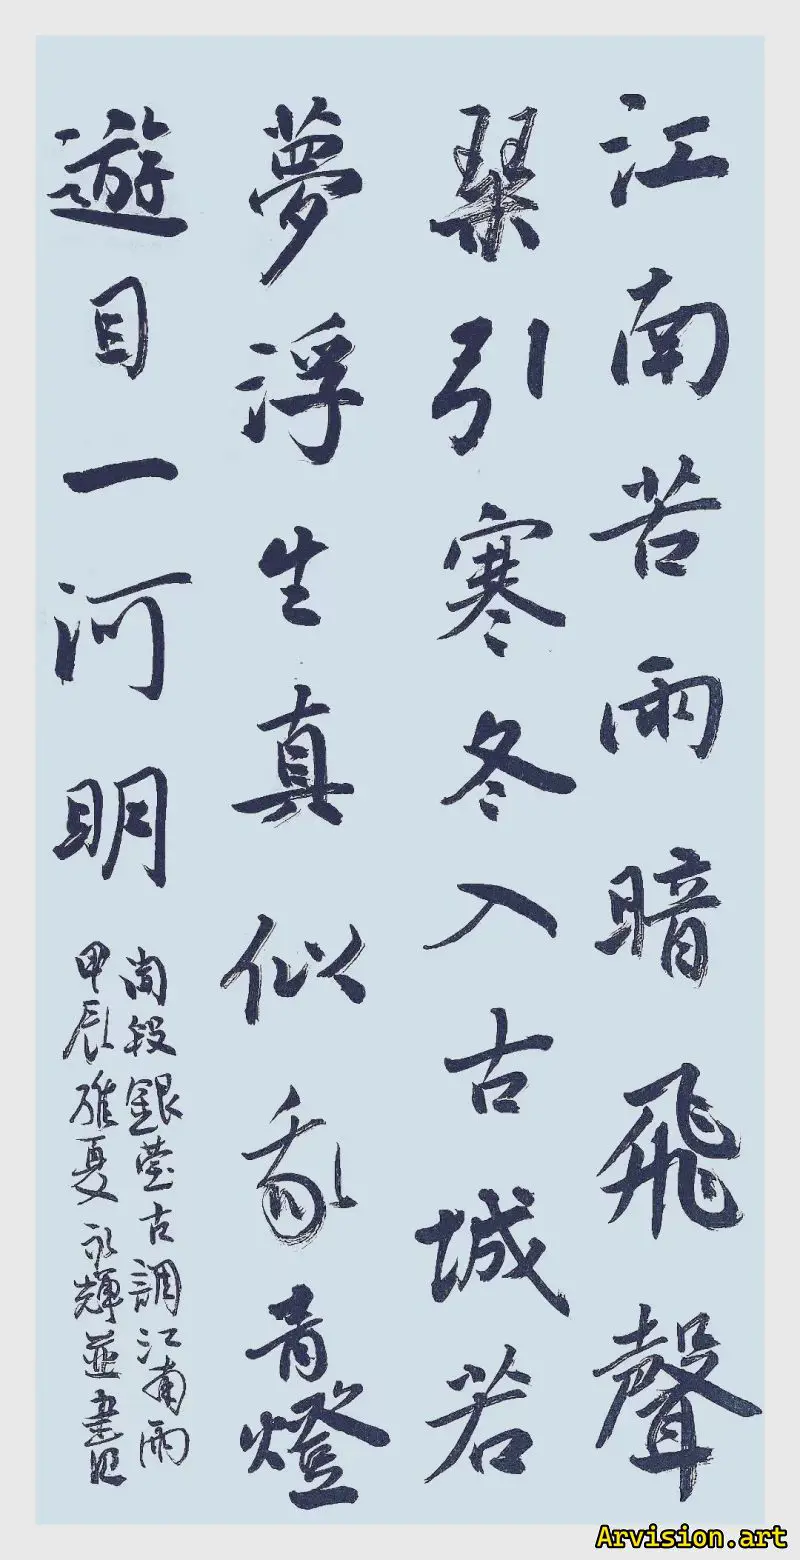 江南苦雨暗飛聲
琹引寒冬入古城若
夢浮生真似亂青燈
遊目一河明
銀古調江南雨
甲辰夏永輝並書
Arvision.art